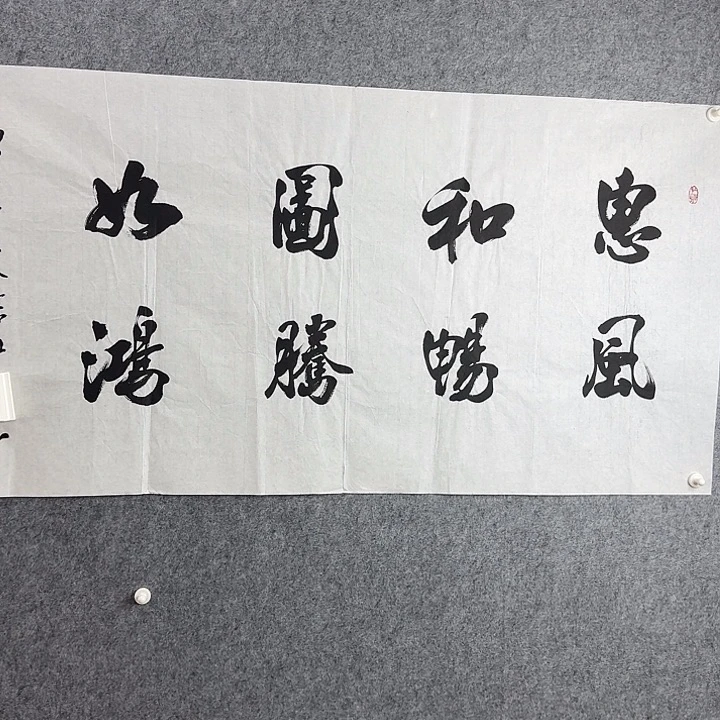 惠風
和暢
圖騰
如鴻